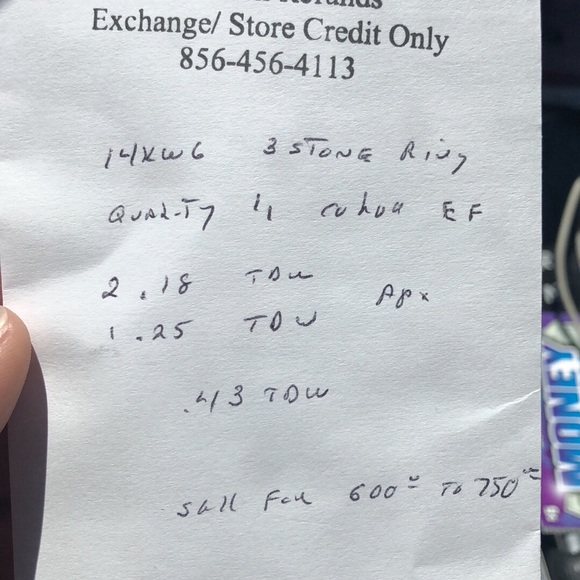 Exchange/ Store Credit Only
856-456-4113
14KWG 3 STONE Ring
QUALITY I1 COLOR EF
2 .18 TDW
Apx
1 .25 TDW
.43 TDW
Sell For 600 To 750
MONEY